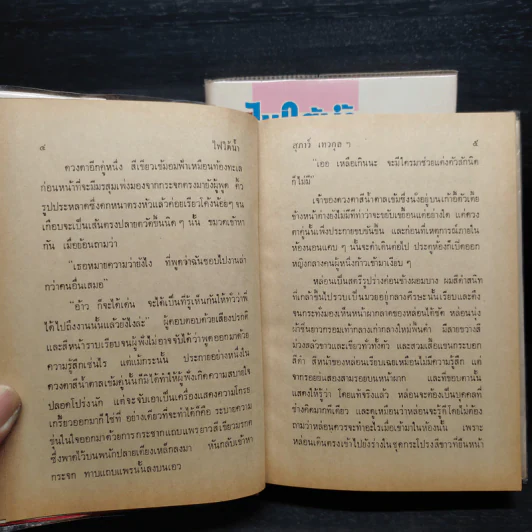 ๔ ไฟใต้น้ำ
ดวงตาอีกคู่หนึ่ง สีเขียวเข้มอมฟ้าเหมือนท้องทะเล
ก่อนหน้าที่จะมีมรสุมเพ่งมองจากกระจกตรงมายังผู้พูด คิ้ว
รูปประหลาดซึ่งดกหนาตรงหัวแล้วค่อยเรียวโค้งน้อยๆ จน
เกือบจะเป็นเส้นตรงปลายตวัดขึ้นนิด ๆ นั้น ขมวดเข้าหา
กัน เมื่อย้อนถามว่า
"เธอหมายความว่ายังไง ที่พูดว่าฉันชอบไปงานล่า
กว่าคนอื่นเสมอ"
"อ้าว ก็จะได้เด่น จะได้เป็นที่รู้เห็นกันให้ทั่วว่าพี่
ได้ไปถึงงานนั้นแล้วยังไงล่ะ" ผู้ตอบตอบด้วยเสียงปรกติ
และสีหน้าราบเรียบจนผู้ฟังไม่อาจจับได้ว่าพูดออกมาด้วย
ความรู้สึกเช่นไร แต่แม้กระนั้น ประกายอย่างหนึ่งใน
ดวงตาสีน้ำตาลเข้มคู่นั้นก็มิได้ทำให้ผู้ฟังเกิดความสบายใจ
ปลอดโปร่งนัก แต่จะจับเอาเป็นเครื่องแสดงความโกรธ
เกรี้ยวออกมาก็ใช่ที่ อย่างเดียวที่จะทำได้ก็คือ ระบายความ
ขุ่นในใจออกมาด้วยการกระชากแถบแพรยาวสีเขียวมรกต
ซึ่งพาดไว้บนพนักปลายเตียงเหล็กลงมา หันกลับเข้าหา
กระจก ทาบแถบแพรนั้นลงบนเอว
สุภาว์ เทวกุล ฯ ๕
"เออ เหลือเกินนะ จะมีใครมาช่วยแต่งตัวสักนิด
ก็ไม่มี"
เจ้าของดวงตาสีน้ำตาลเข้มซึ่งนั่งอยู่บนเก้าอี้ตัวเตี้ย
ข้างหน้าต่างยังไม่มีทีท่าว่าจะขยับเขยื้อนแต่อย่างใด แต่ดวง
ตาคู่นั้นเพิ่งประกายขบขันขึ้น และก่อนที่เหตุการณ์ภายใน
ห้องนอนแคบ ๆ นั้นจะดำเนินต่อไป ประตูห้องก็เปิดออก
หญิงกลางคนผู้หนึ่งก้าวเข้ามาเงียบ ๆ
หล่อนเป็นสตรีรูปร่างค่อนข้างผอมบาง ผมสีดำสนิท
ที่เกล้าขึ้นไปรวบเป็นมวยอยู่กลางศีรษะนั้นเรียบและตึง
จนกระทั่งมองเห็นหน้าผากลาดของหล่อนได้ชัด หล่อนนุ่ง
ผ้าซิ่นยาวกรอมเท้ากลางเก่ากลางใหม่พื้นดำ มีลายขวางสี
ม่วงสลับขาวและเขียวทั่วทั้งตัว และสวมเสื้อแขนกระบอก
สีดำ สีหน้าของหล่อนเรียบเฉยเหมือนไม่มีความรู้สึก แต่
จากรอยย่นสองสามรอยบนหน้าผาก และที่ขอบตานั้น
แสดงให้รู้ว่า โดยแท้จริงแล้ว หล่อนจะต้องเป็นบุคคลที่
ช่างคิดมากทีเดียว และดูเหมือนว่าหล่อนจะรู้ดี โดยไม่ต้อง
ถามว่าหล่อนควรจะทำอะไรเมื่อเข้ามาในห้องนั้น เพราะ
หล่อนเดินตรงเข้าไปยังร่างในชุดกระโปรงสีขาวที่ยืนหน้า